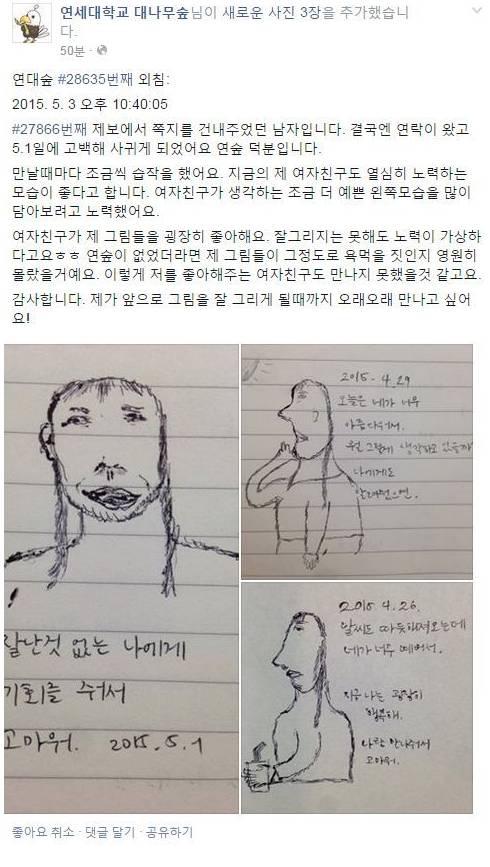 연세대학교 대나무숲님이 새로운 사진 3장을 추가했습니
다.
50분 ·
연대숲 #28635번째 외침:
2015. 5. 3 오후 10:40:05
#27866번째 제보에서 쪽지를 건내주었던 남자입니다. 결국엔 연락이 왔고
5.1일에 고백해 사귀게 되었어요 연숲 덕분입니다.
만날때마다 조금씩 습작을 했어요. 지금의 제 여자친구도 열심히 노력하는
모습이 좋다고 합니다. 여자친구가 생각하는 조금 더 예쁜 왼쪽모습을 많이
담아보려고 노력했어요.
여자친구가 제 그림들을 굉장히 좋아해요. 잘그리지는 못해도 노력이 가상하
다고요ㅎㅎ 연숲이 없었더라면 제 그림들이 그정도로 욕먹을 짓인지 영원히
몰랐을거예요. 이렇게 저를 좋아해주는 여자친구도 만나지 못했을것 같고요.
감사합니다. 제가 앞으로 그림을 잘 그리게 될때까지 오래오래 만나고 싶어
요!
잘난것 없는 나에게
기회를 줘서
고마워. 2015.5.1
2015. 4.29
오늘은 네가 너무
아름다워서.
뭘 그렇게 생각하고 있을까
나에게도
알려줬으면.
2015.4.26.
날씨도 따뜻해져오는데
네가 너무 예뻐서.
지금 나는 굉장히
행복해.
나랑 만나줘서
고마워.
좋아요 취소 · 댓글 달기 · 공유하기